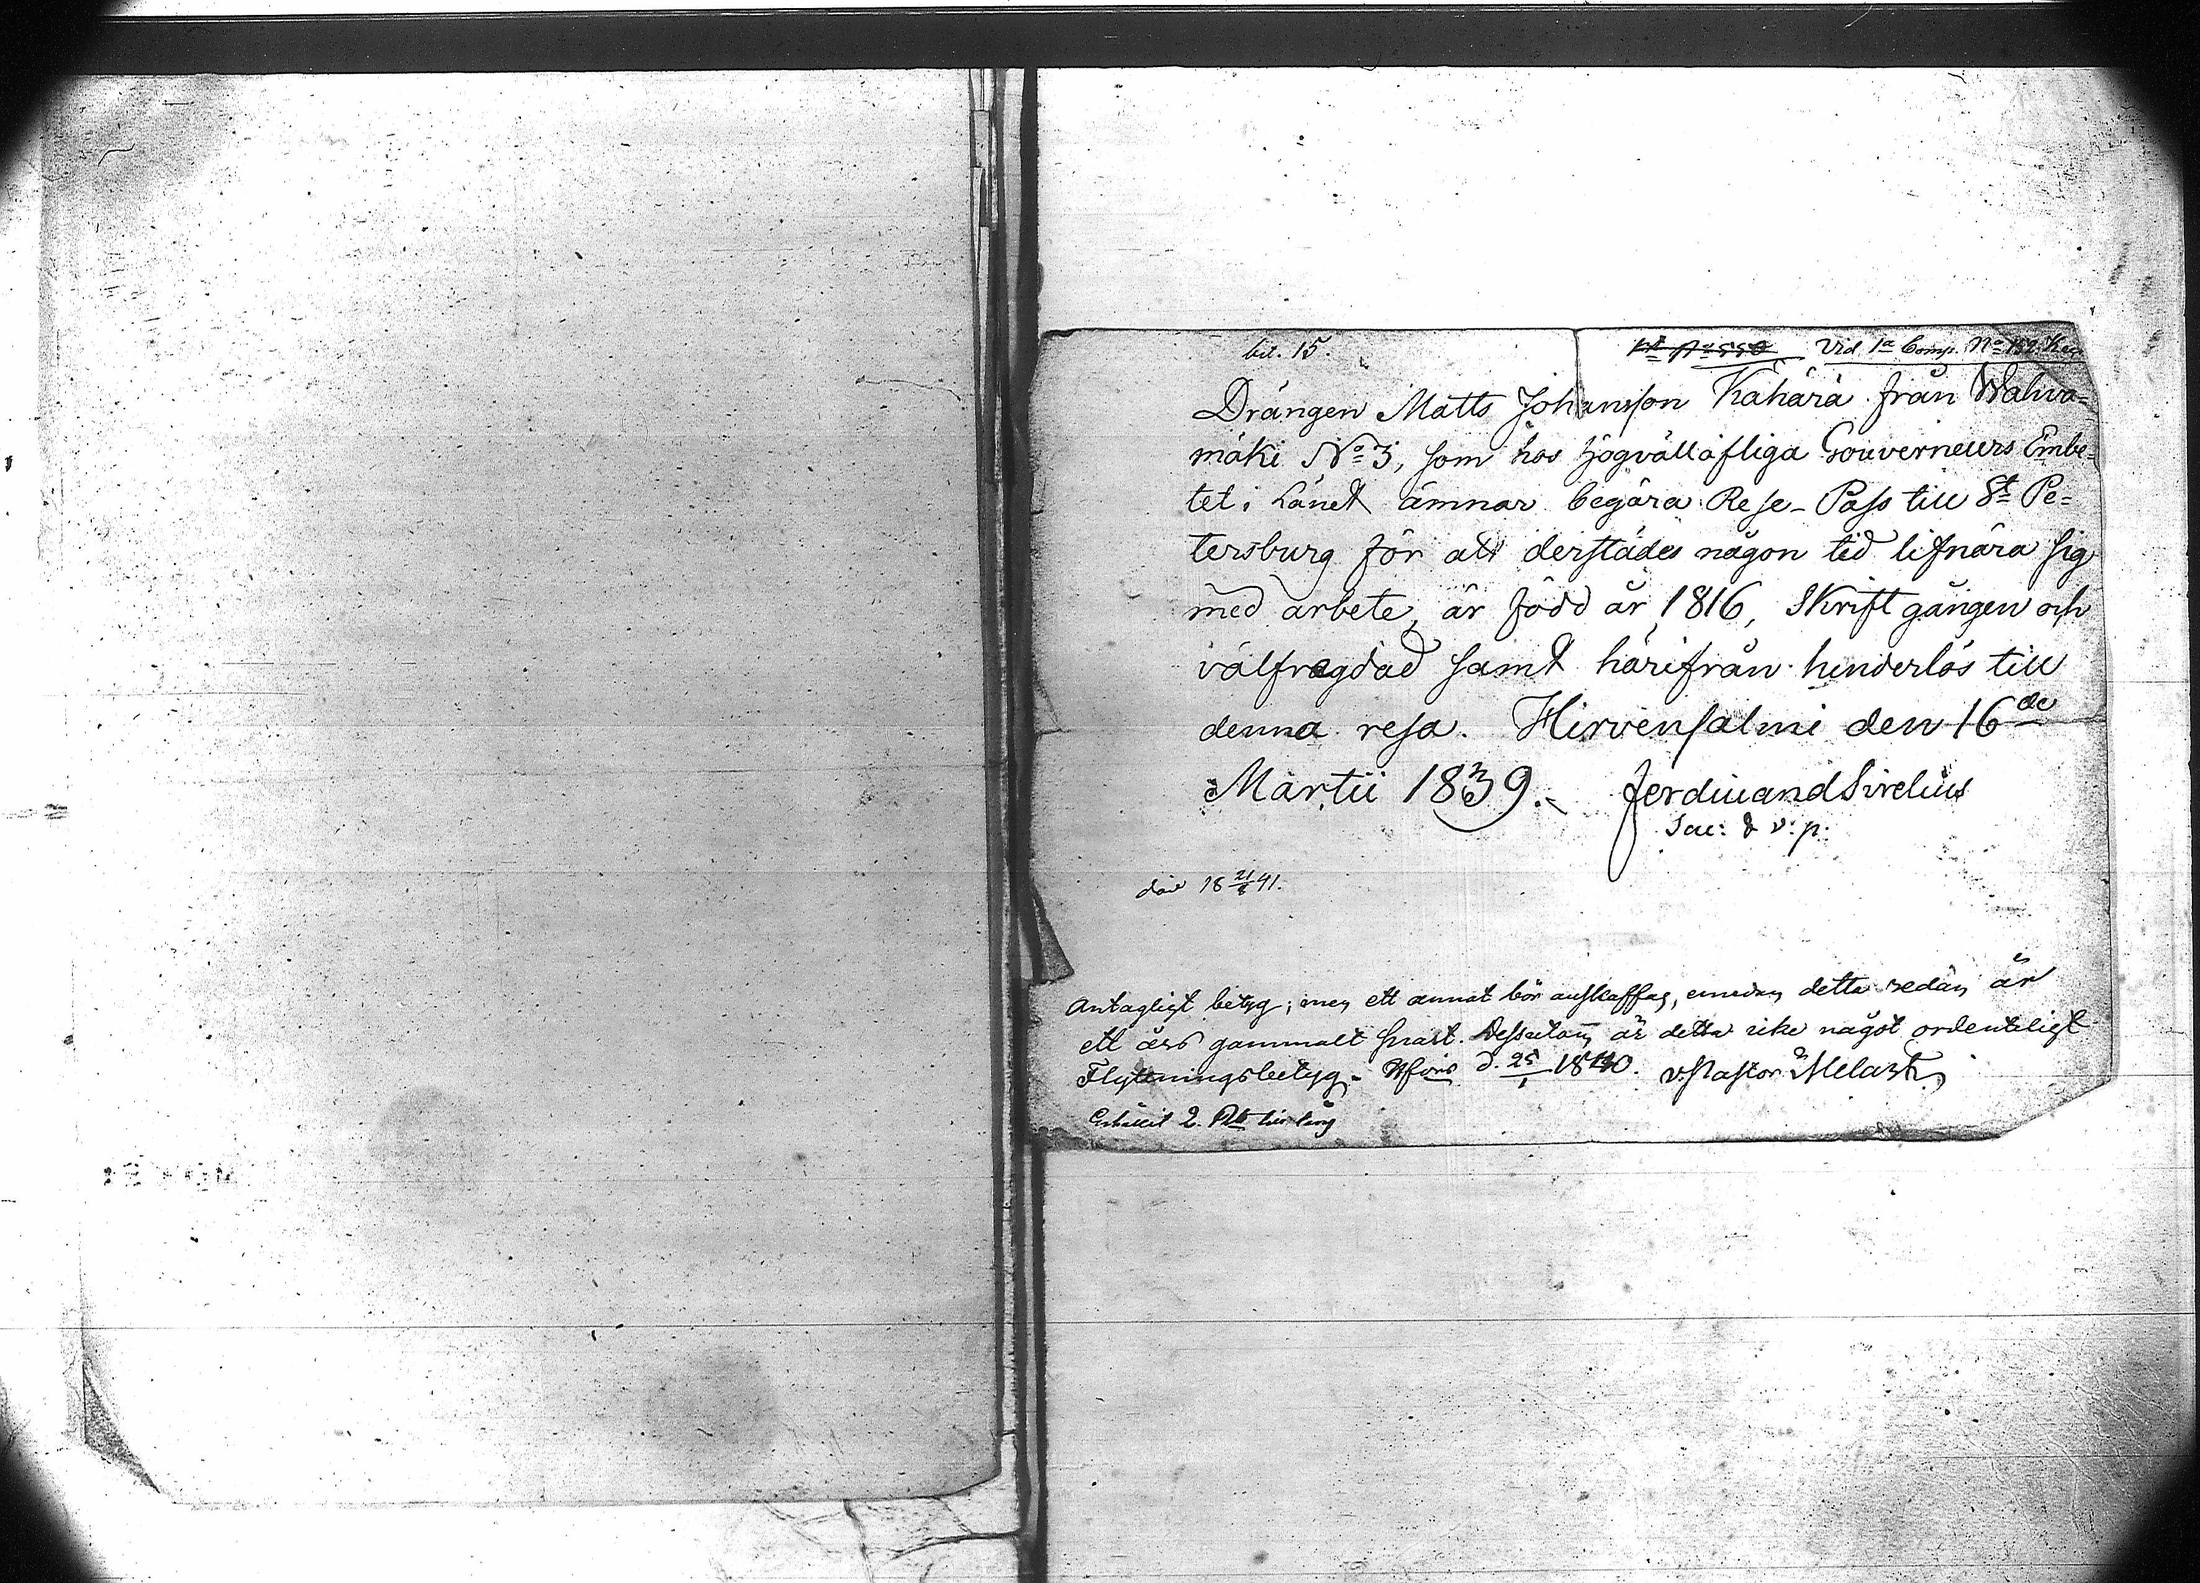 bil. 15.
Vid 1a Comp. No 152
Drängen Matts Johansson Kähärä från Wahva=
mäki No 3, som hos Högvällofliga Gouverneurs Embe=
tet i Länet ämnar begära Rese-Pass till St Pe=
tersburg för att derstädes någon tid lifnära sig
med arbete, är född år 1816, Skriftgången och
välfrägdad samt härifrån hinderlös till
denna resa. Hirvensalmi den 16de
Martii 1839. Ferdinand Sirelius
Sac: & v: p.
död 18 21/8 41.
Antagligt betyg; men ett annat bör anskaffas, emedan detta redan är
ett års gammalt snart. Dessutom är detta icke något ordenteligt
Flyttningsbetyg. Wfors d. 25/1 1840. v. Pastor Melart
2. Rub